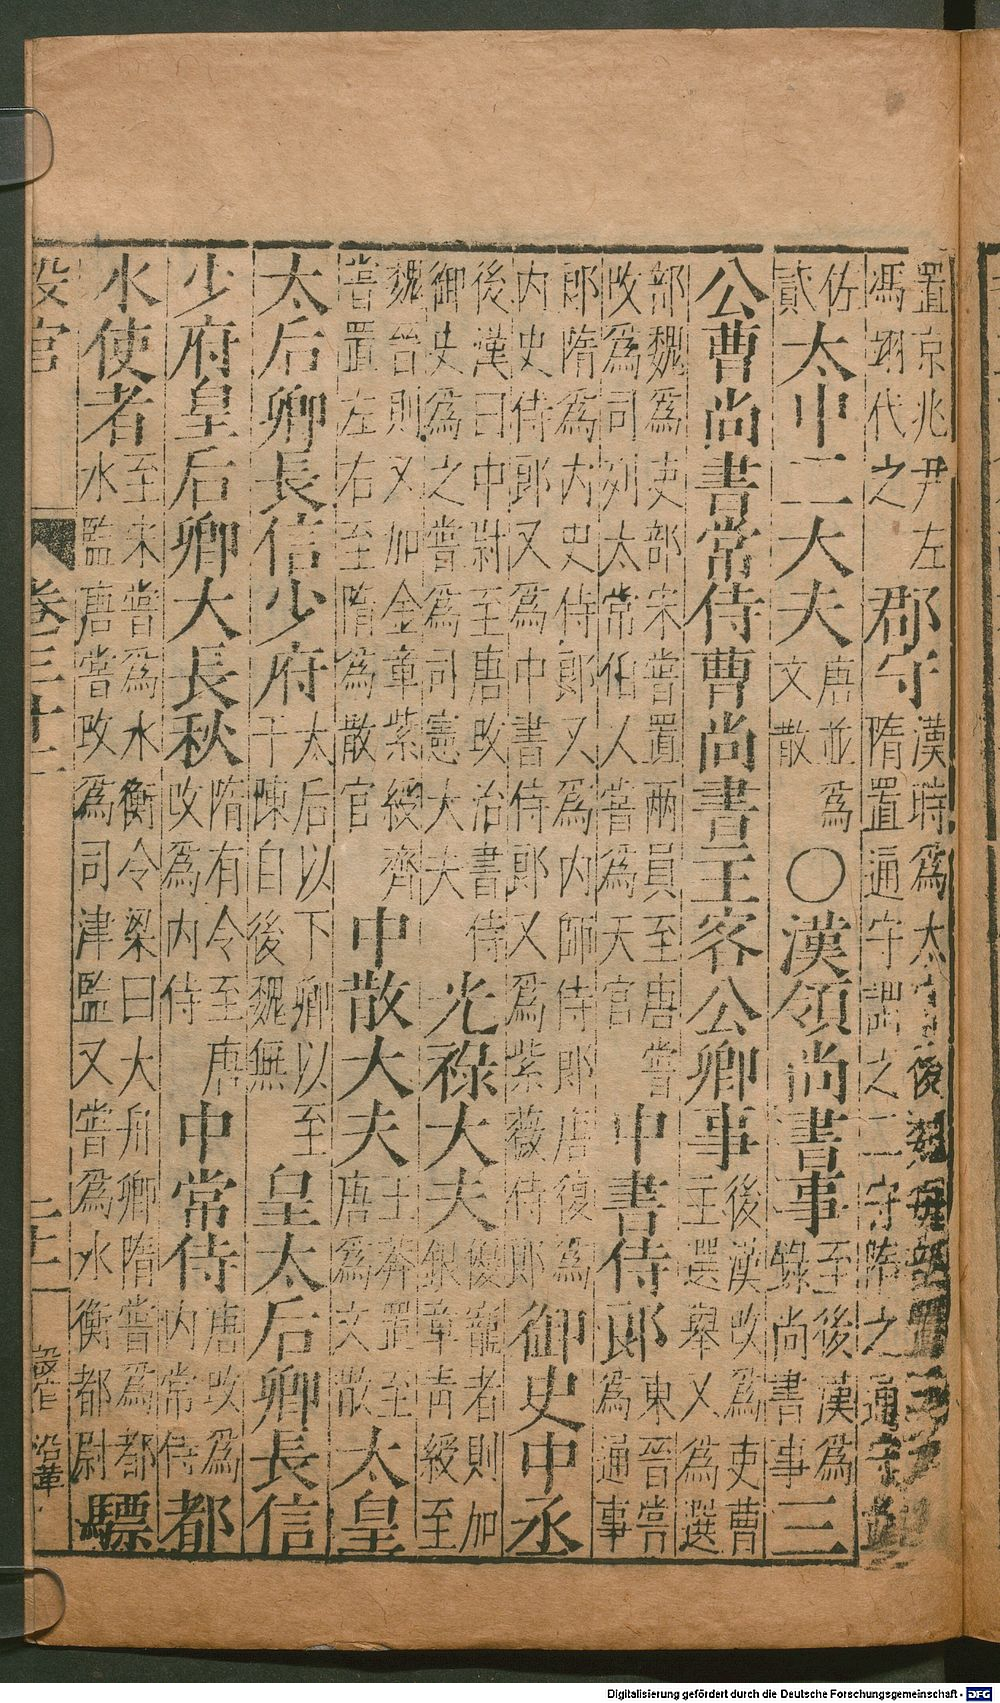 置京兆尹左
馮翊代之
郡守
漢時爲太守後魏每郡置三
隋置通守謂之二守隋之通守
佐
貳
太中二大夫
唐並爲
文散
○漢領尚書事
至後漢爲
錄尚書事
三
公曹尚書常侍曹尚書主客公卿事
後漢改爲吏曹
主選舉又爲選
部魏爲吏部宋嘗置兩員至唐嘗
改爲司列太常伯人嘗爲天官
中書侍郎
東晉嘗
爲通事
郎隋爲内史侍郎又爲内師侍郎唐復爲
内史侍郎又爲中書侍郎又爲紫薇侍郎
御史中丞
後漢曰中尉至唐改治書侍
御史爲之嘗爲司憲大夫
光祿大夫
優寵者則加
銀章青綬至
魏晉則又加金章紫綬齊
嘗置左右至隋爲散官
中散大夫
王莽置至
唐爲文散
太皇
太后卿長信少府
太后以下卿以至
于陳自後魏無
皇太后卿長信
少府皇后卿大長秋
隋有令至唐
改爲内侍
中常侍
唐改爲
内常侍
都
水使者
至宋嘗爲水衡令梁曰大舟卿隋嘗爲都
水監唐嘗改爲司津監又嘗爲水衡都尉
驃
設官
卷三十二
設官 沿革